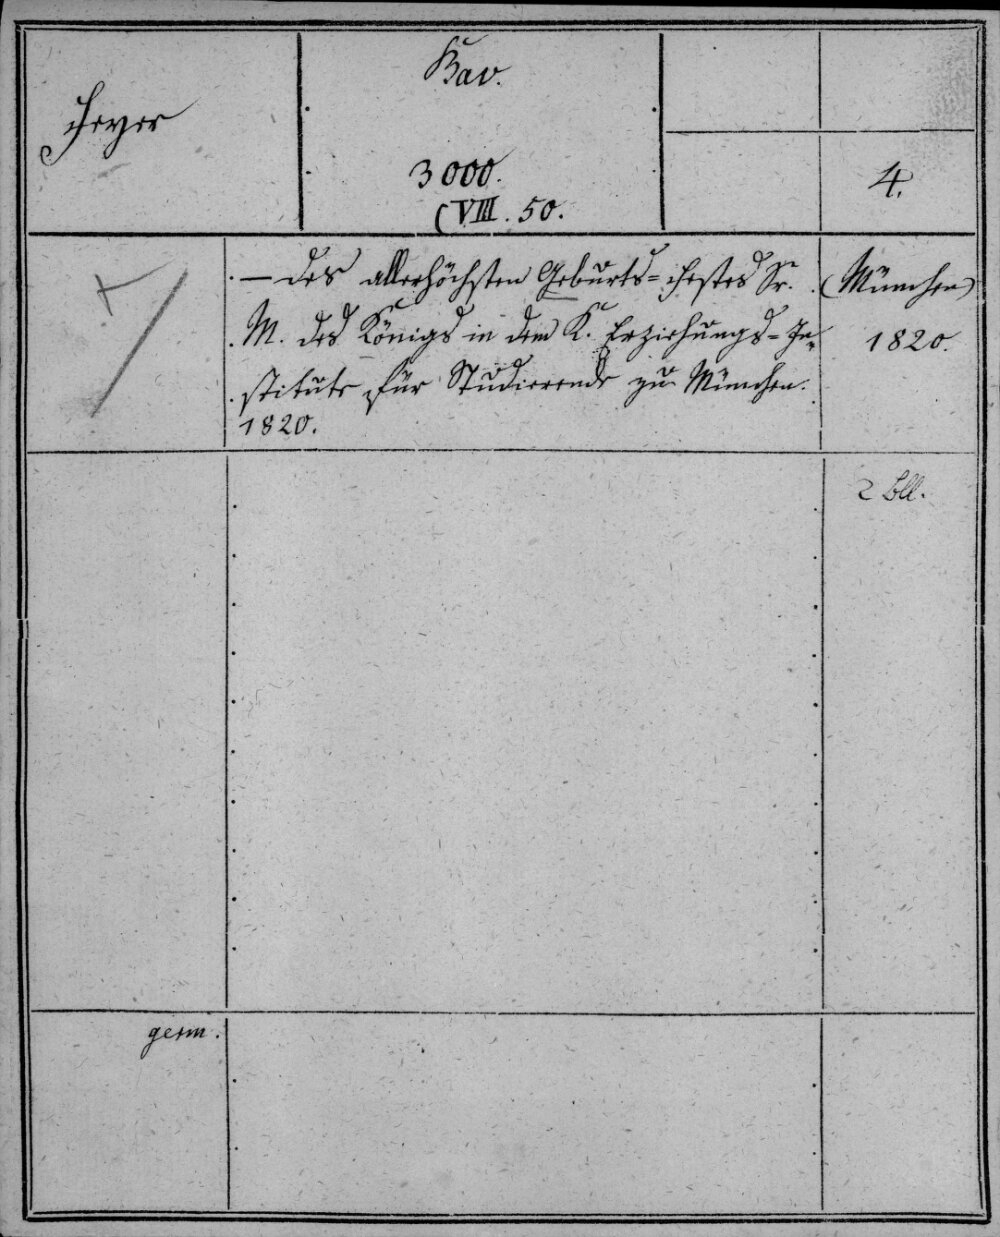 Feyer
Bav.
3000.
(VIII. 50.
4.
— des allerhöchsten Geburts=Festes Sr.
M. des Königs in dem K. Erziehungs=In=
stitute für Studierende zu München.
1820.
(München)
1820.
2 Bll.
germ.